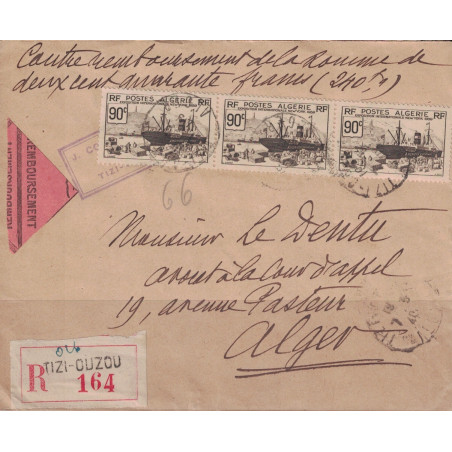 Contre remboursement de la somme de
deux cent quarante francs (240 frs)
RF POSTES ALGERIE RF
90c
RF POSTES ALGERIE RF
90c
RF POSTES ALGERIE RF
90c
J. CO
TIZI-
REMBOURSEMENT
REMBOURSEMENT
66
Monsieur Le Dentu
avocat à la Cour d'appel
19, avenue Pasteur
Alger
TIZI-OUZOU
R 164